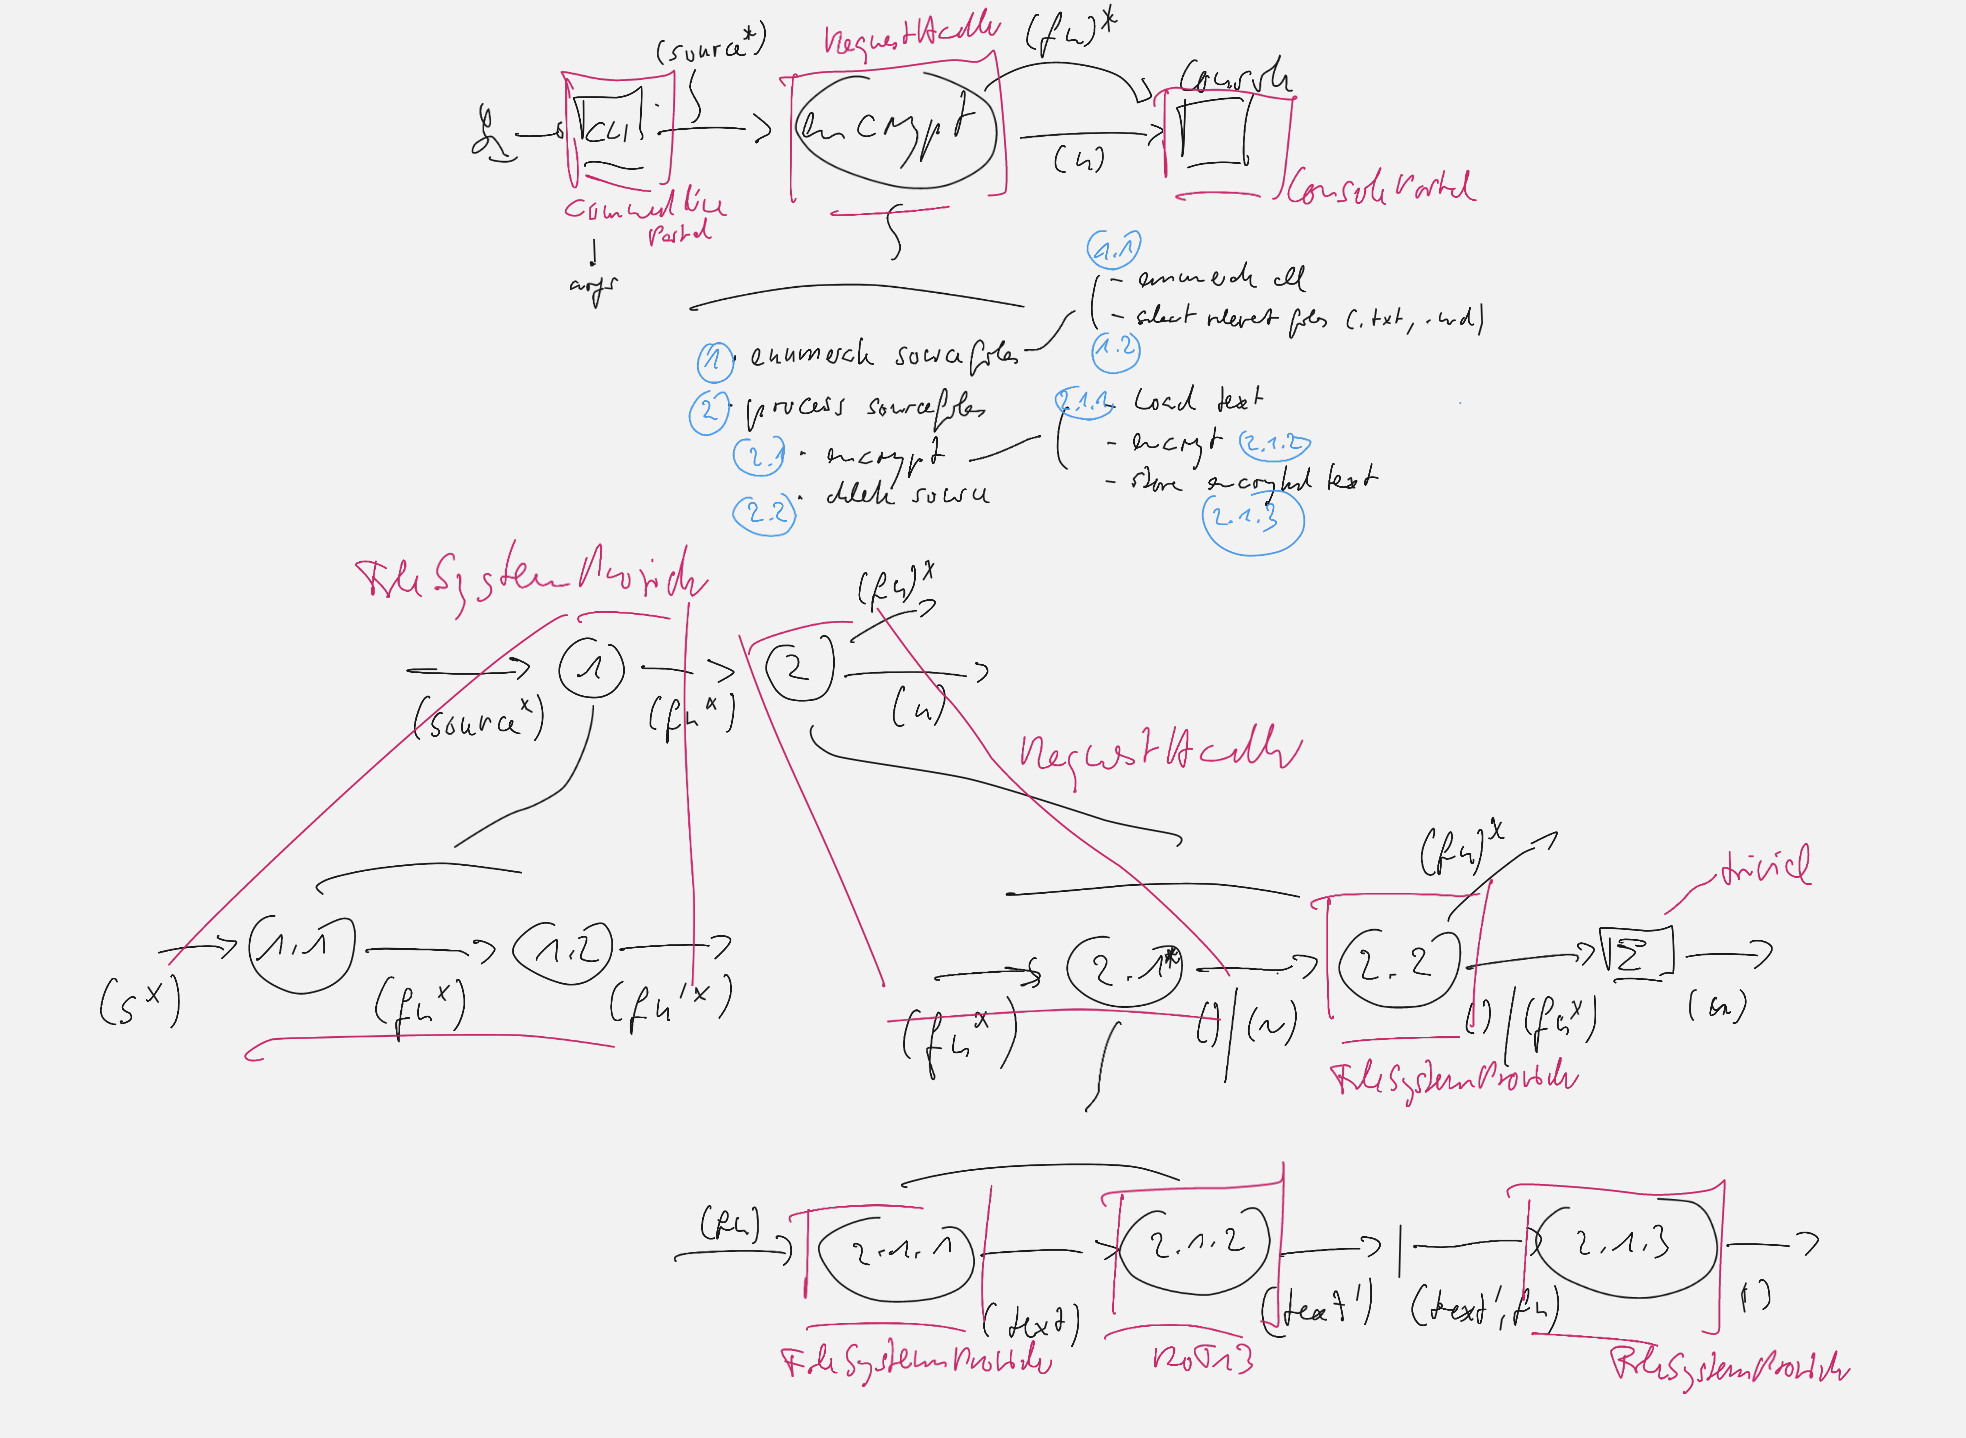 (source*)
RequestHandler
(fn)*
Console
CLI
encrypt
(n)
Console Portal
Command line
Portal
args
1.1
- enumerate all
- select relevant files (.txt, .md)
1.2
1 · enumerate source files
2 · process source files
2.1 · encrypt
2.2 · delete source
2.1.1 - Load text
- encrypt 2.1.2
- store encrypted text
2.1.3
FileSystemProvider
(fn)*
1
2
(source*)
(fn*)
(n)
RequestHandler
(fn)*
trivial
1.1
1.2
2.1*
2.2
Σ
(s*)
(fn*)
(fn'*)
(fn*)
()/(n)
()/(fn*)
(n)
FileSystemProvider
(fn)
2.1.1
2.1.2
2.1.3
(text)
(text')
(text', fn)
()
FileSystemProvider
ROT13
FileSystemProvider